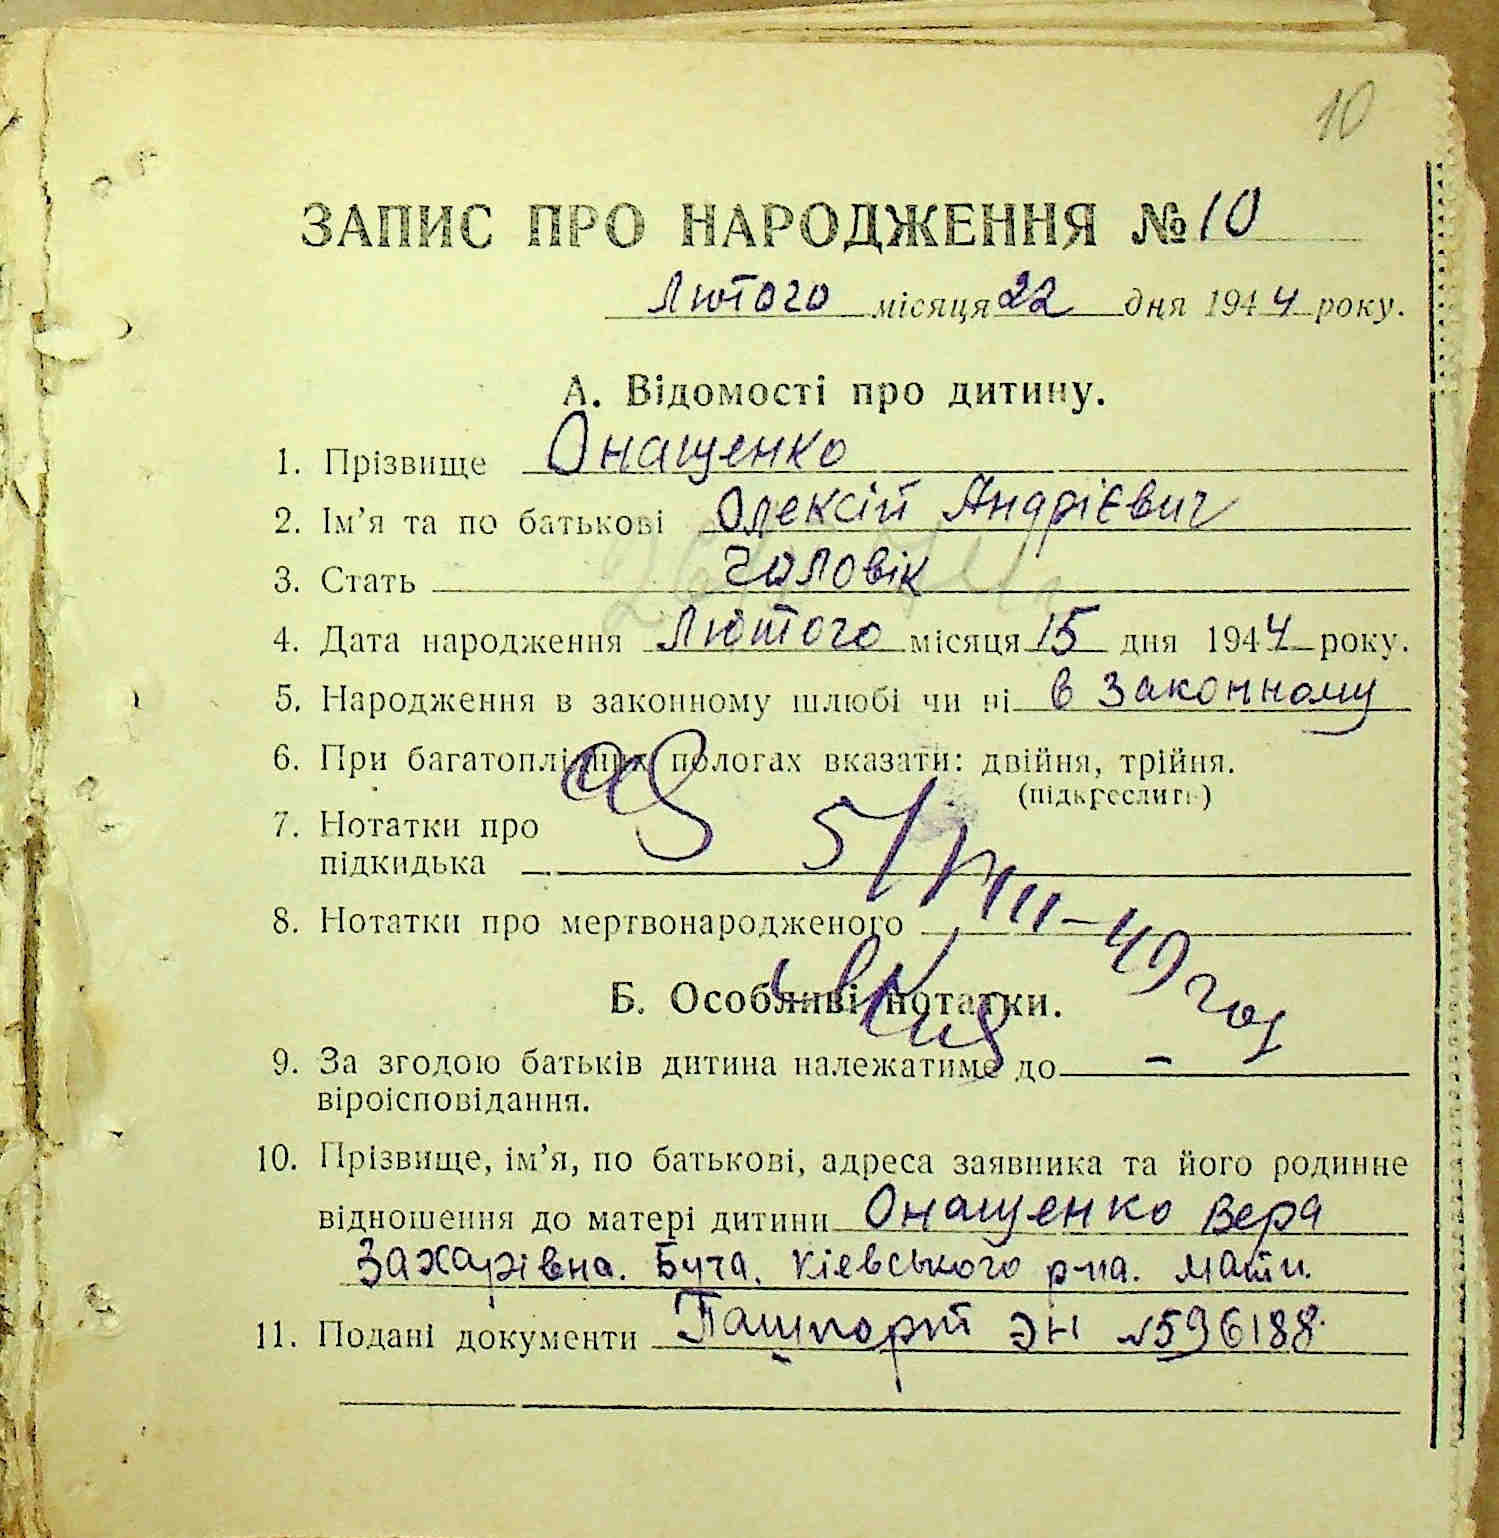 10
ЗАПИС ПРО НАРОДЖЕННЯ № 10
Лютого місяця 22 дня 1944 року.
А. Відомості про дитину.
1. Прізвище Онащенко
2. Ім'я та по батькові Олексій Андрієвич
3. Стать Чоловік
4. Дата народження Лютого місяця 15 дня 1944 року.
5. Народження в законному шлюбі чи ні в законному
6. При багатоплідних пологах вказати: двійня, трійня.
(підкреслити)
7. Нотатки про
підкидька
5/VIII-49 год
8. Нотатки про мертвонародженого
Б. Особливі нотатки.
9. За згодою батьків дитина належатиме до –
віроісповідання.
10. Прізвище, ім'я, по батькові, адреса заявника та його родинне
відношення до матері дитини Онащенко Вера
Захарівна. Буча. Кіевського р-на. мати.
11. Подані документи Пашпорт ЭН №596188.